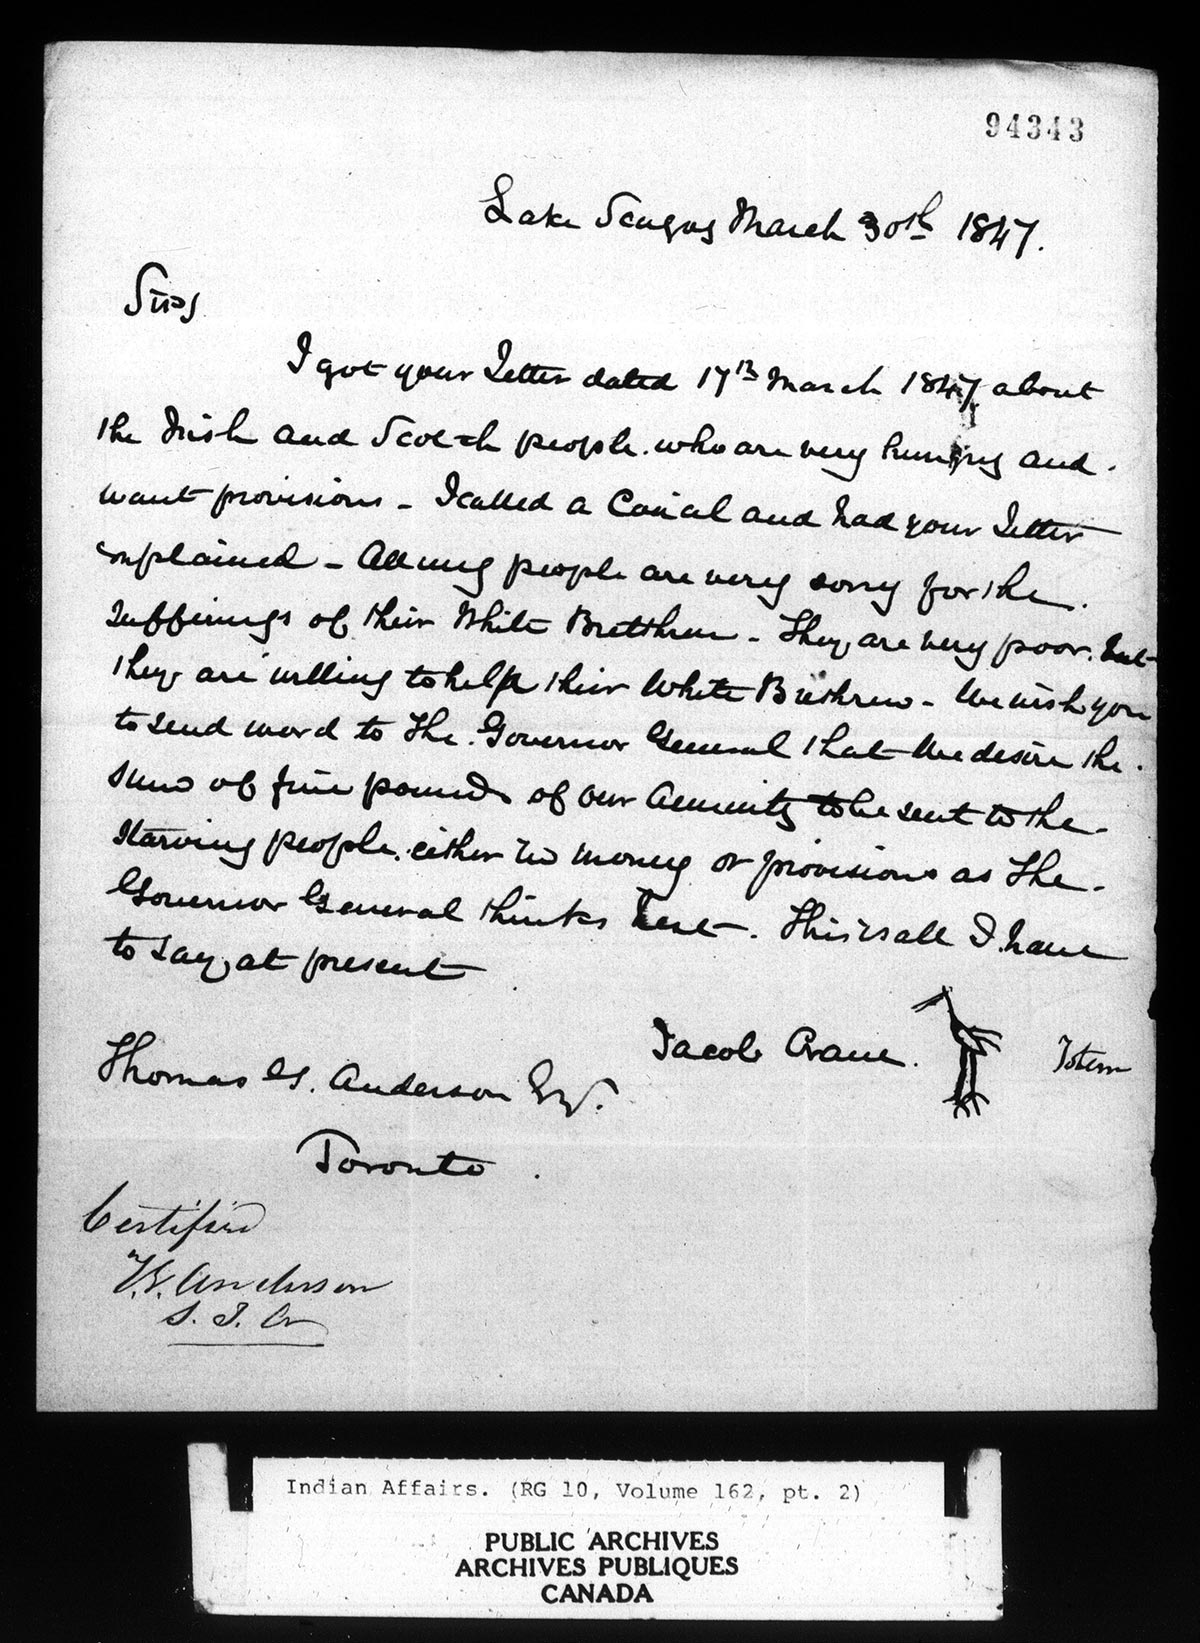 94343
Lake Scugog March 30th 1847.
Sirs
I got your Letter dated 17th March 1847 about
the Irish and Scotch people. who are very hungry and
want provisions - I called a Concil and had your Letter
explained - All my people are very sorry for the
sufferings of their White Bretthren - They are very poor. but
they are willing to help their White Brethren - We wish you
to send word to The Governor General that We desire the
sum of five pounds of our Annuity to be sent to the
starving people. either in money or provisions as The
Governor General thinks best - This is all I have
to say at present
Jacob Crane. Totem
Thomas G. Anderson Esq.
Toronto
Certified
T.G. Anderson
S. I. A
Indian Affairs. (RG 10, Volume 162, pt. 2)
PUBLIC ARCHIVES
ARCHIVES PUBLIQUES
CANADA